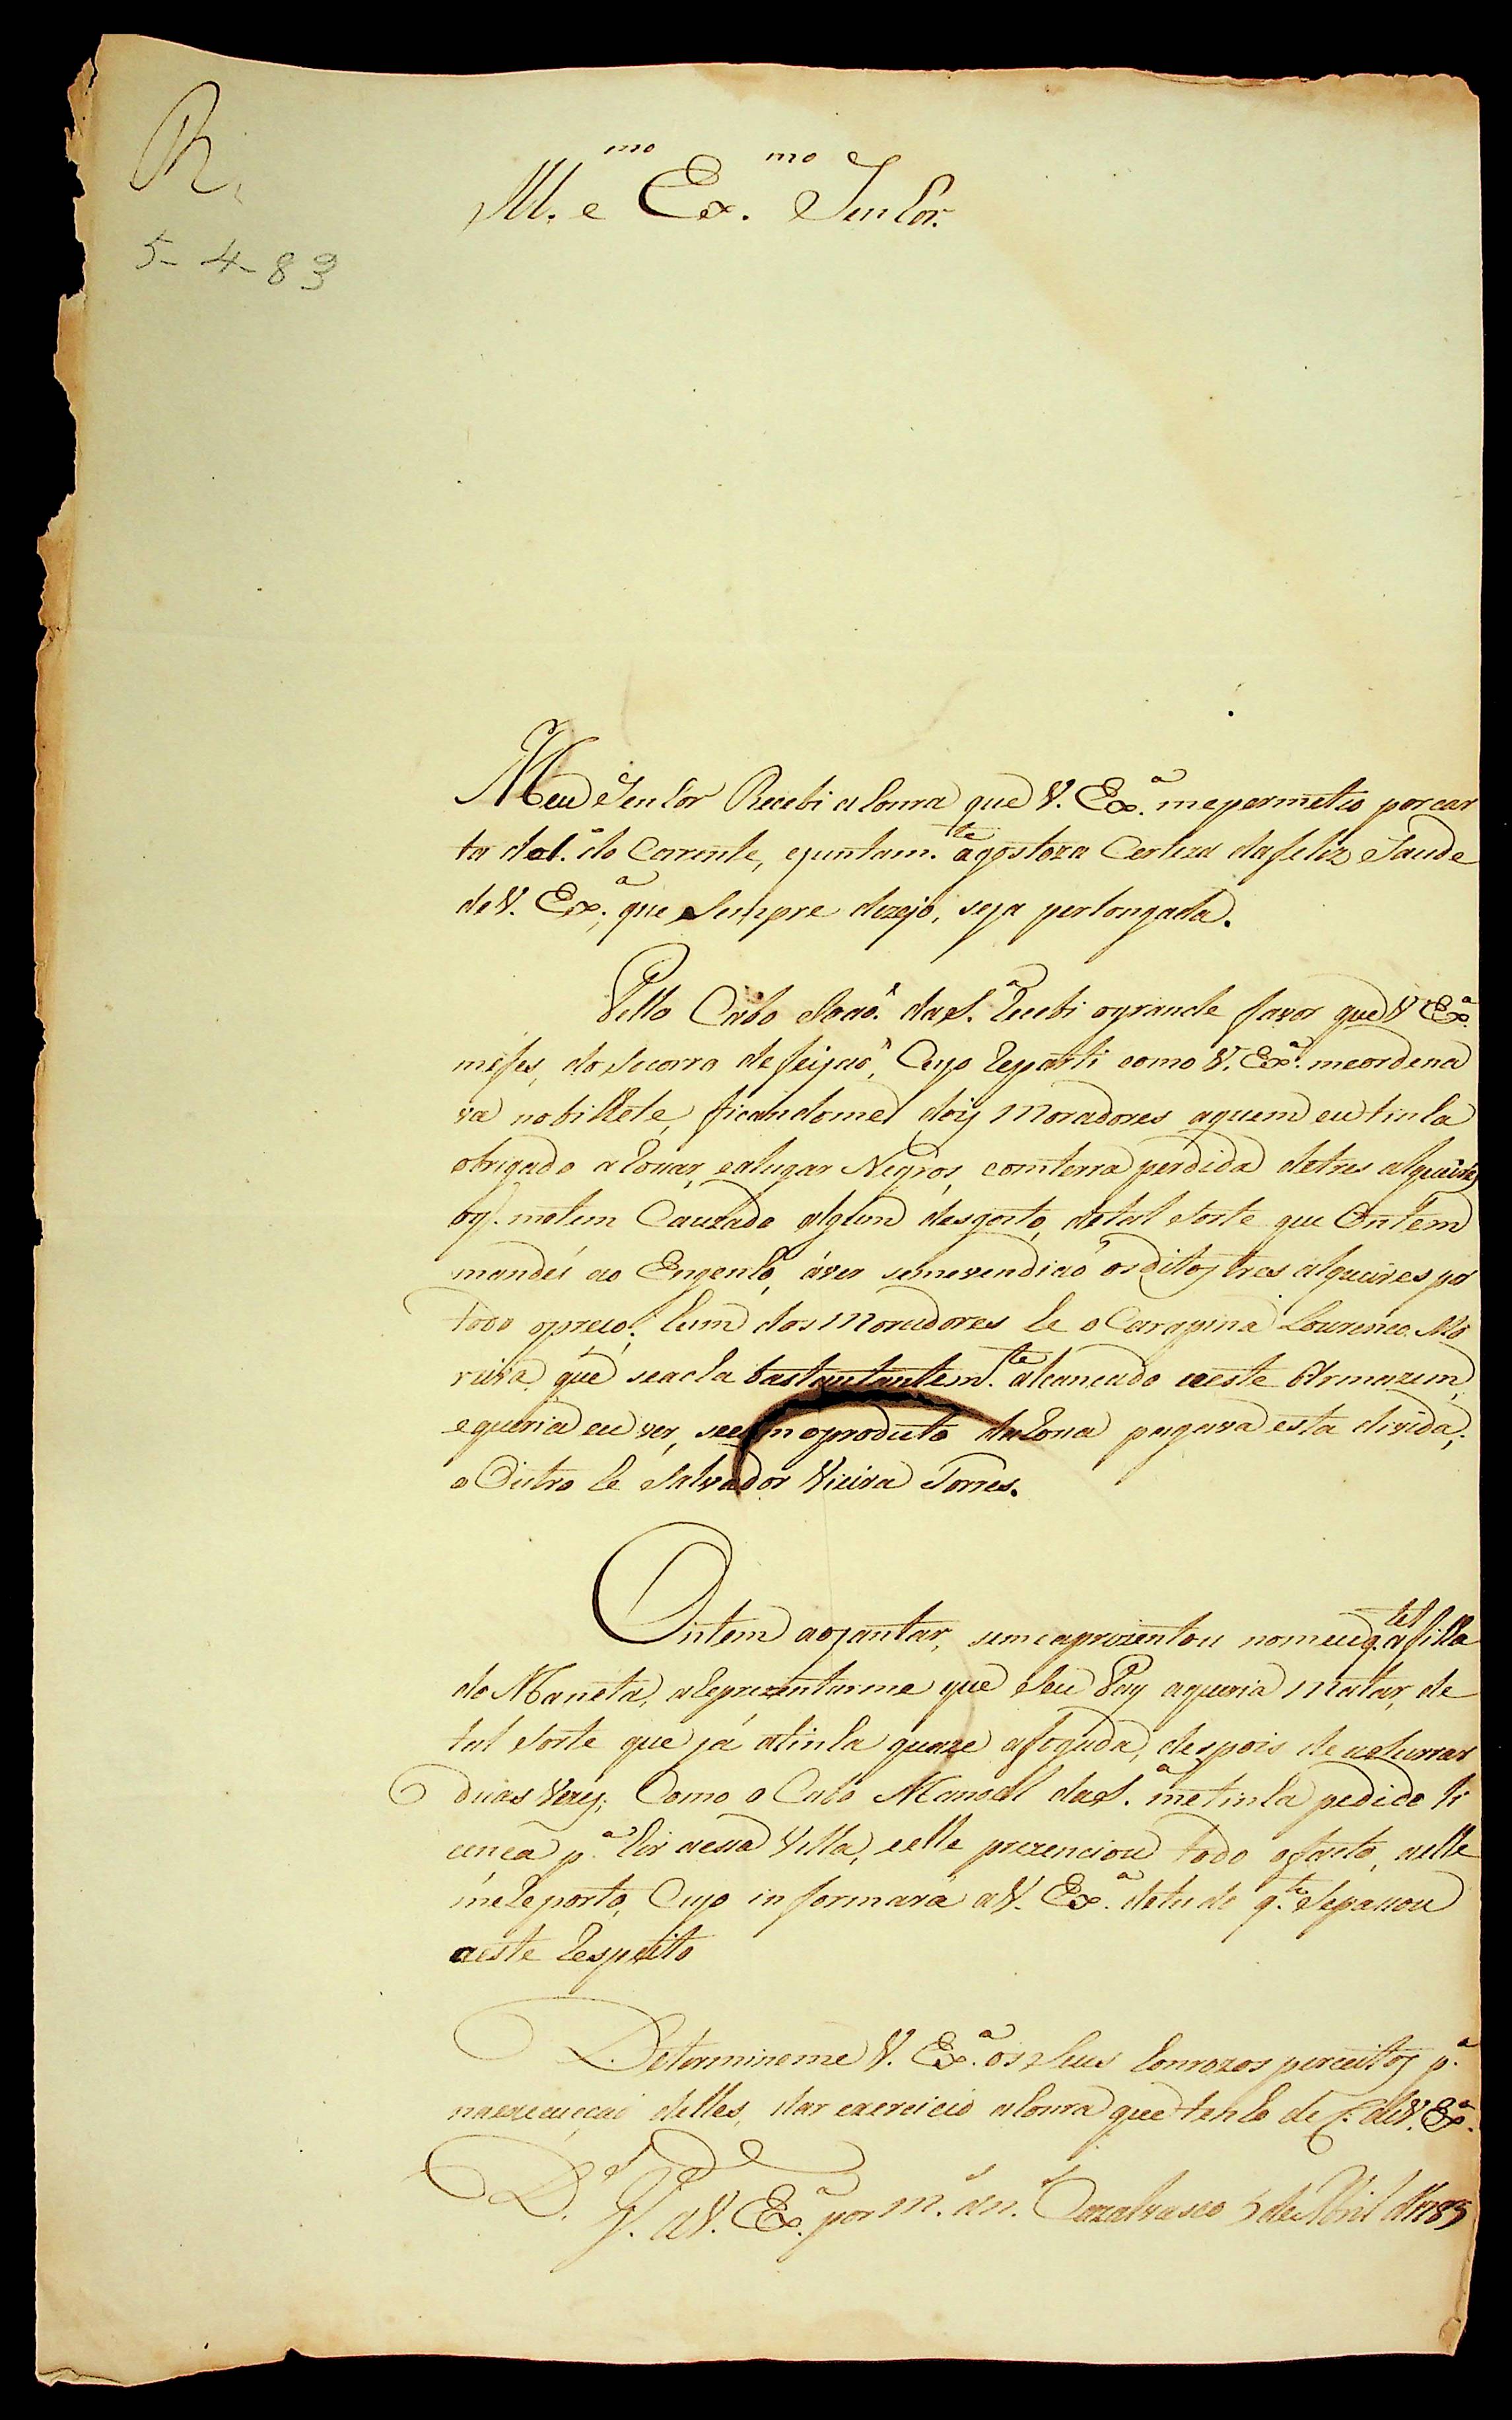 R.
5-4-83
Ill.mo e Ex.mo Senhor.
Meu Senhor Recebi a honra que V. Ex.a me permetio por car
ta do 1.o do Corrente, e juntam.te a gostoza Certeza da feliz Saude
de V. Ex.a, que Sempre dezejo, seja perlongada.
Pello Cabo João da S.a Recebi o grande favor que V Ex.a
me fes, do Socorro de feijaõ, Cujo Reparti como V. Ex.a me ordena
va no bilhete, ficandome dois Moradores a quem eu tinha
obrigado a Rosar, e alugar Negros, com terra perdida de tres alqueires
o q. me tem Cauzado algum desgosto, de tal Sorte que Ontem
mandei ao Engenho, á ver se me vendiaõ os ditos tres alqueires por
todo o preço: hum dos Moradores he o Carapina Lourenço Mo
reira, que se acha bastantantem.te alcançado neste Armazem,
e queria eu ver, se com o produto da Rosa pagava esta divida;
o Outro he Salvador Vieira Torres.
Ontem ao jantar, se me aprezentou no meu q.tel a filha
do Maneta, a Reprezentarme que Seu Pay a queria Matar, de
tal Sorte que já a tinha quaze afogada, despois de a Surrar
duas Vezes: Como o Cabo Manoel da S.a me tinha pedido li
cença p.a hir a essa Villa, e elle prezenciou todo o facto, a elle
me Reporto, Cujo informará a V. Ex.a de tudo q.to Se passou
a este Respeito
Determineme V. Ex.a os Seus honrozos perceitos p.a
na execuccaõ delles, dar exercicio a honra que tenho de C. de V. Ex.a
D.s G.de a V. Ex.a por m.s an.s Cazalvasco 5 de Abril de 1783